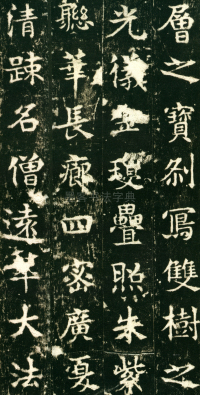 層之寶剎寫雙樹之
光儀疊照朱紫
聯華長廊四密廣夏
清疎名僧遠萃大法